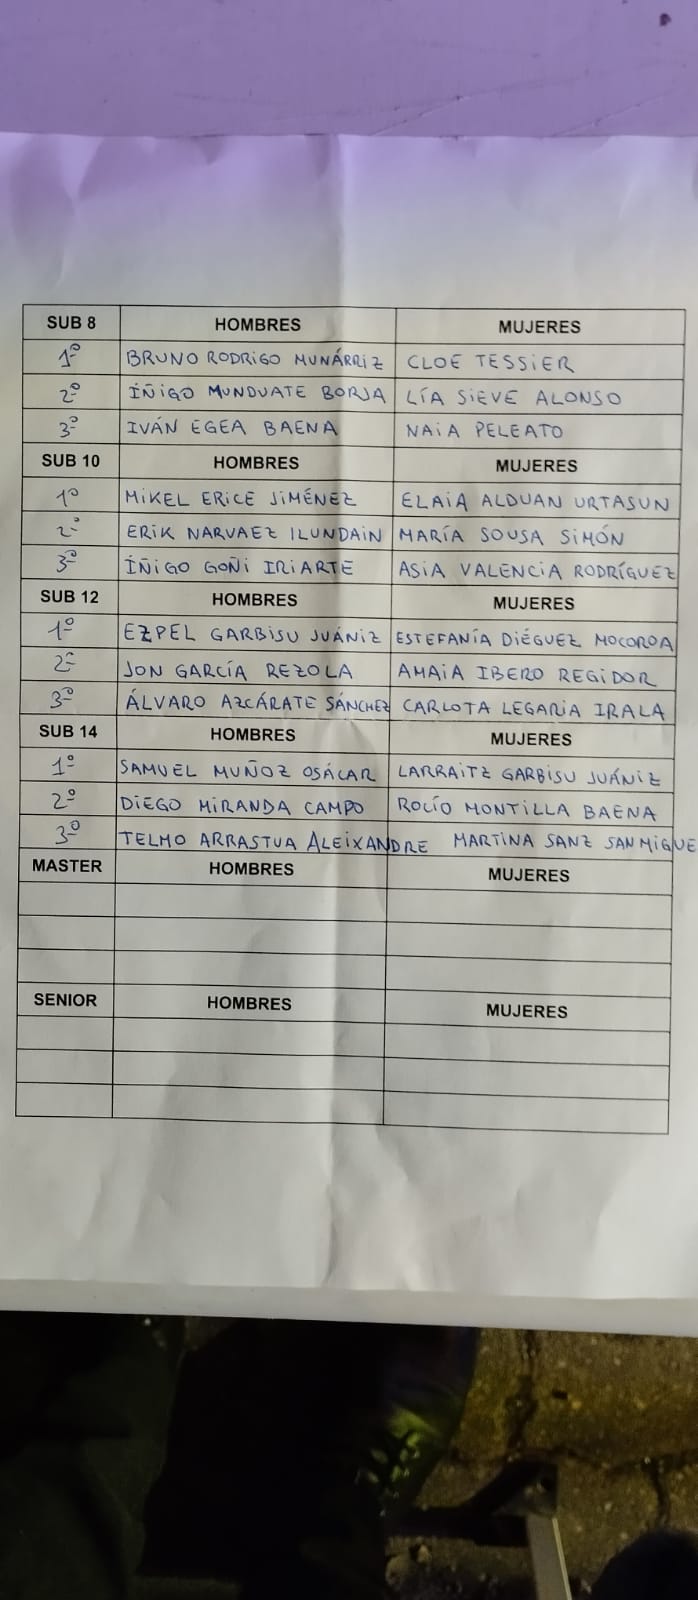 SUB 8 HOMBRES MUJERES
1º BRUNO RODRIGO MUNÁRRIZ CLOE TESSIER
2º IÑIGO MUNDUATE BORJA LÍA SIEVE ALONSO
3º IVÁN EGEA BAENA NAIA PELEATO
SUB 10 HOMBRES MUJERES
1º MIKEL ERICE JIMÉNEZ ELAIA ALDUAN URTASUN
2º ERIK NARVAEZ ILUNDAIN MARÍA SOUSA SIMÓN
3º ÍÑIGO GOÑI IRIARTE ASIA VALENCIA RODRÍGUEZ
SUB 12 HOMBRES MUJERES
1º EZPEL GARBISU JUÁNIZ ESTEFANÍA DIÉGUEZ MOCOROA
2º JON GARCÍA REZOLA AMAIA IBERO REGIDOR
3º ÁLVARO AZCÁRATE SÁNCHEZ CARLOTA LEGARIA IRALA
SUB 14 HOMBRES MUJERES
1º SAMUEL MUÑOZ OSÁCAR LARRAITZ GARBISU JUÁNIZ
2º DIEGO MIRANDA CAMPO ROCÍO MONTILLA BAENA
3º TELMO ARRASTUA ALEIXANDRE MARTINA SANZ SAN MIGUE
MASTER HOMBRES MUJERES
SENIOR HOMBRES MUJERES